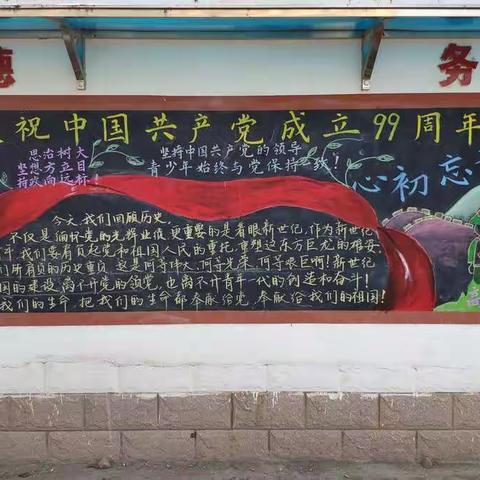 德 务
祝中国共产党成立99周年
思治树大
坚想方立目
持政向远标!
坚持中国共产党的领导
青少年始终与党保持一致!
心初忘
今天我们回顾历史,
不仅是缅怀党的光辉业绩,更重要的是着眼新世纪,作为新世纪
年 我们要肩负起党和祖国人民的重托,重塑这东方巨龙的雄姿
们所肩负的历史重负 这是何等伟大,何等光荣,何等艰巨啊!新世纪
国的建设,离不开党的领党,也离不开青年一代的创造和奋斗!
我们的生命,把我们的生命都奉献给党,奉献给我们的祖国!